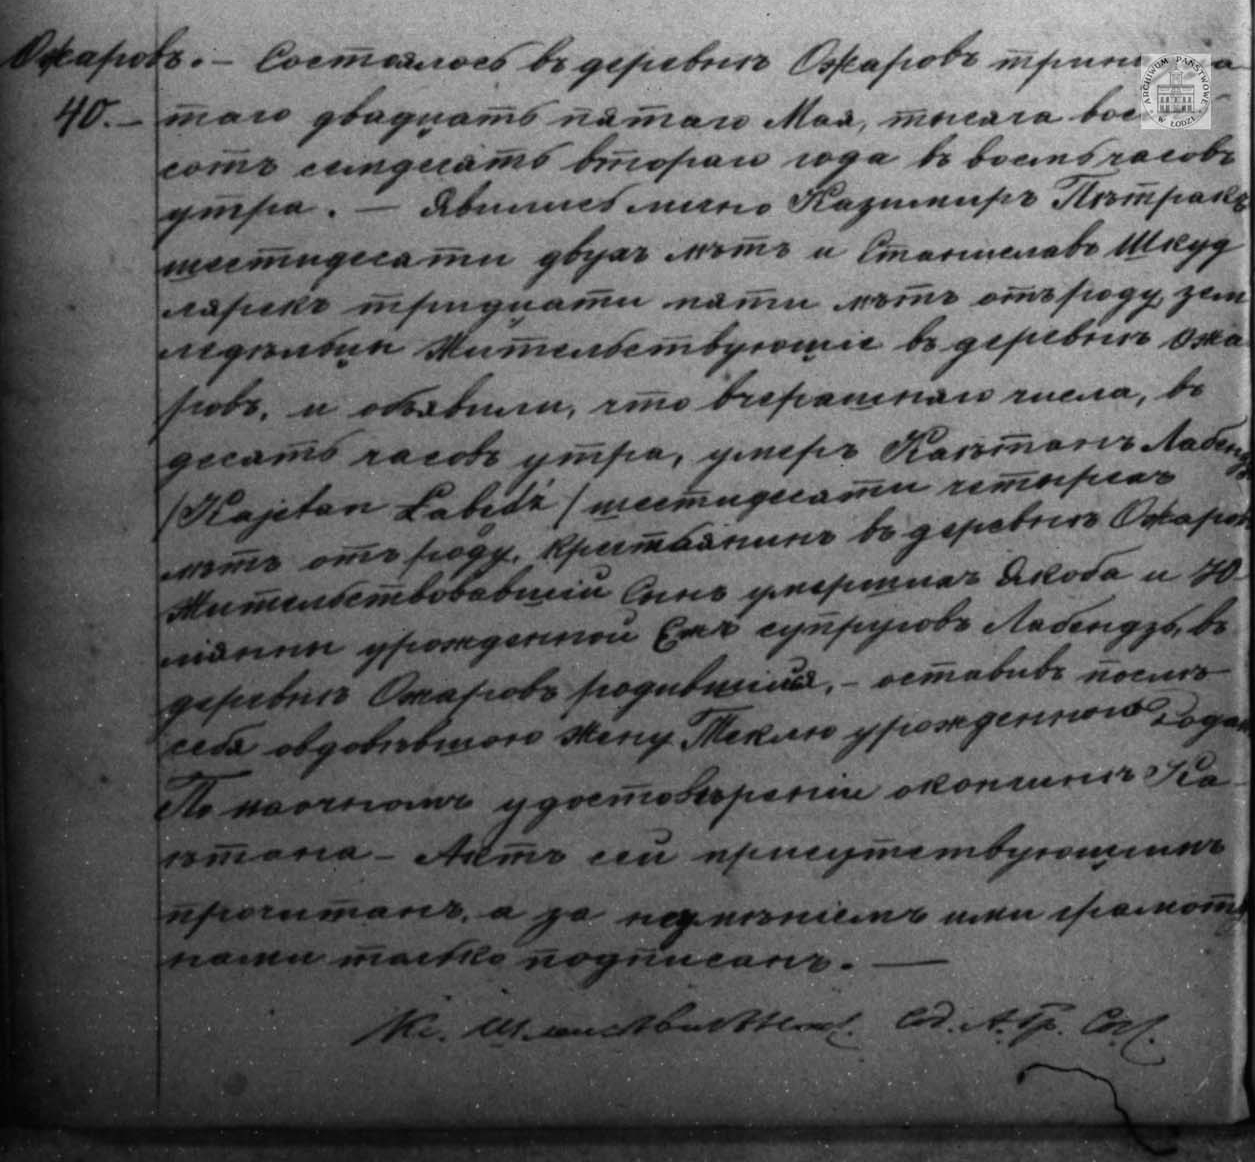 Ожаровъ. — Состоялось въ деревнѣ Ожаровъ
40. — таго двадцать пятаго Мая, тысяча
сотъ семдесятъ втораго года въ восемь часовъ
утра. — Явились лично Казимиръ Пѣтракъ
шестидесяти двухъ лѣтъ и Станиславъ Шкуд
лярекъ тридцати пяти лѣтъ отъ роду, зем
ледѣльцы жительствующіе въ деревнѣ Ожа
ровъ, и объявили, что вчерашняго числа, въ
десять часовъ утра, умеръ Каэтанъ Лабендзь
/Kajetan Łabędź/ шестидесяти четырехъ
лѣтъ отъ роду, крестьянинъ въ деревнѣ Ожаровъ
жительствовавшій Сынъ умершихъ Якоба и Ю
ліянны урожденной супруговъ Лабендзь, въ
деревнѣ Ожаровъ родившійся, — оставивъ послѣ
себя овдовѣвшою жену Теклю урожденною
По наочномъ удостовѣреніи о кончинѣ Ка-
ѣтана — Актъ сей присутствующимъ
прочитанъ, а за неумѣніемъ ими грамоты
нами только подписанъ. —
Кс. Сод. А. Гр. Сос.
ARCHIWUM PAŃSTWOWE W ŁODZI